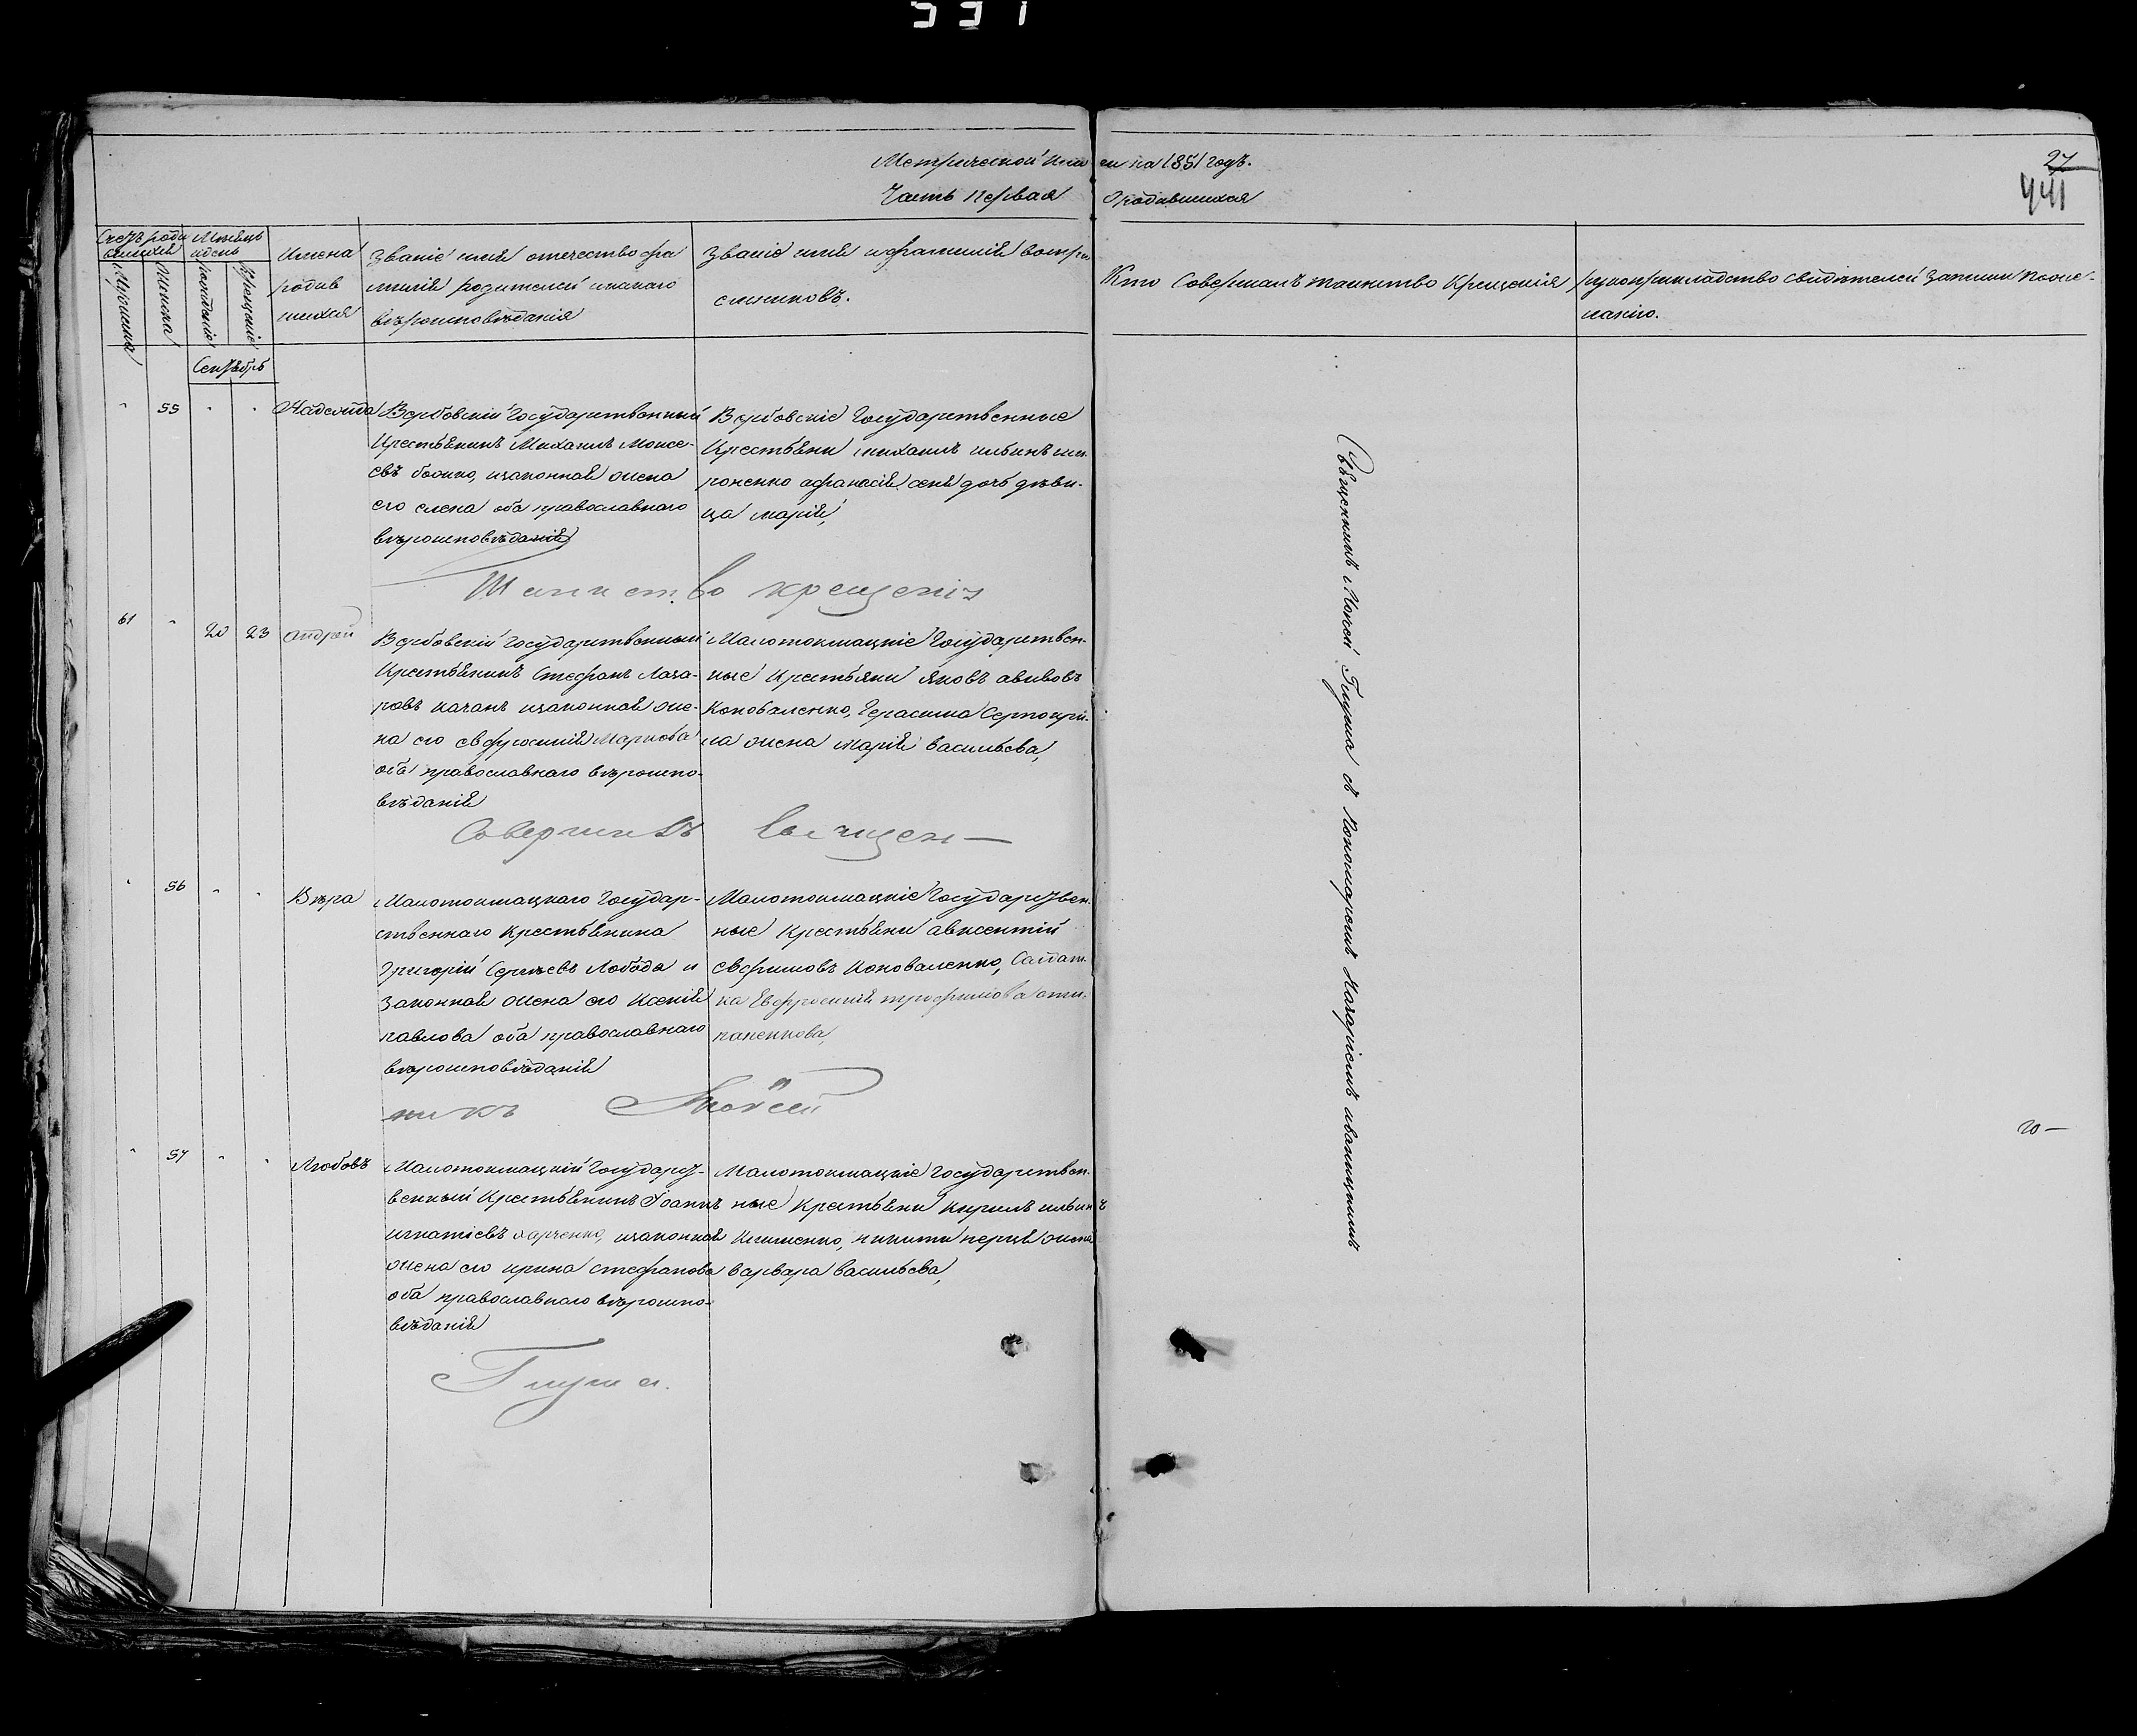 Метрической книги на 1851 годъ.
27
441
Часть первая О родившихся
Счетъ роди
вшихся
Мѣсяцъ
и день
Мужеска
Женска
рожденіе
крещеніе
Имена
родив
шихся
Званіе имя отечество фа
милія родителей и какого
вѣроисповѣданія
Званіе имя и фамилія воспри
емниковъ.
Кто Совершалъ таинство Крещенія
рукоприкладство свидѣтелей записи по же-
ланію.
Сентябрь
55
Надежда
Вербовскій Государственный
Крестьянинъ Михаилъ Моисе-
евъ Бойко, изаконная жена
его елена оба православнаго
вѣроисповѣданія
Вербовскіе Государственные
Крестьяни михаилъ ильинъ
афанасія дочь дѣви-
ца марія,
Таинство крещенія
61
20 23
Андрей
Вербовскій Государственный
Крестьянинъ Стефанъ Лаза-
ровъ качанъ изаконная же-
на его евфросинія Маркова
оба православнаго вѣроиспо-
вѣданія
Малотокмацкіе Государствен-
ные Крестьяни Яковъ авивовъ
Коноваленко, Герасима
жена марія васильева,
Совершилъ Священ—
56
Вѣра
Малотокмацкаго Государ-
ственнаго Крестьянина
Григорій Сергѣевъ Лобода и
законная жена его Ксенія
павлова оба православнаго
вѣроисповѣданія
Малотокмацкіе Государствен-
ные Крестьяни авксентій
евфимовъ Коноваленко, Салдат-
ка Евфросинія трофимова сти-
паненкова,
никъ Моѵсей
57
Любовь
Малотокмацкій Государст-
венный Крестьянинъ Іоаннъ
игнатіевъ харченко, изаконная
жена его ирина стефанова
оба православнаго вѣроиспо-
вѣданія
Малотокмацкіе Государствен-
ные Крестьяни Кирилъ ильинъ
Клименко, никити перця жена
варвара васильева,
Глушка.
Священникъ Моѵсей Глушка съ Пономаремъ Назаріемъ иваницкимъ
20—